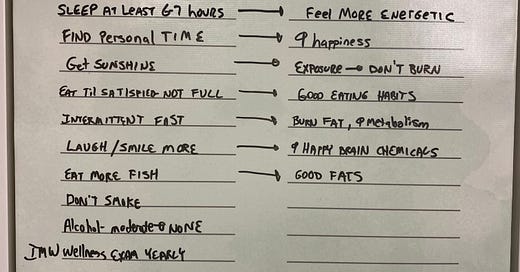 SLEEP AT LEAST 6-7 hours → Feel MORE ENERGETIC
FIND Personal TIME → ↑ happiness
Get SUNSHINE → EXPOSURE → DON'T BURN
EAT Til SATISFIED NOT FULL → GOOD EATING HABITS
INTERMITTENT FAST → BURN FAT, ↑ Metabolism
LAUGH/SMILE MORE → ↑ HAPPY BRAIN CHEMICALS
EAT MORE FISH → GOOD FATS
DON'T SMOKE
Alcohol - moderate → NONE
IMW Wellness EXAM YEARLY